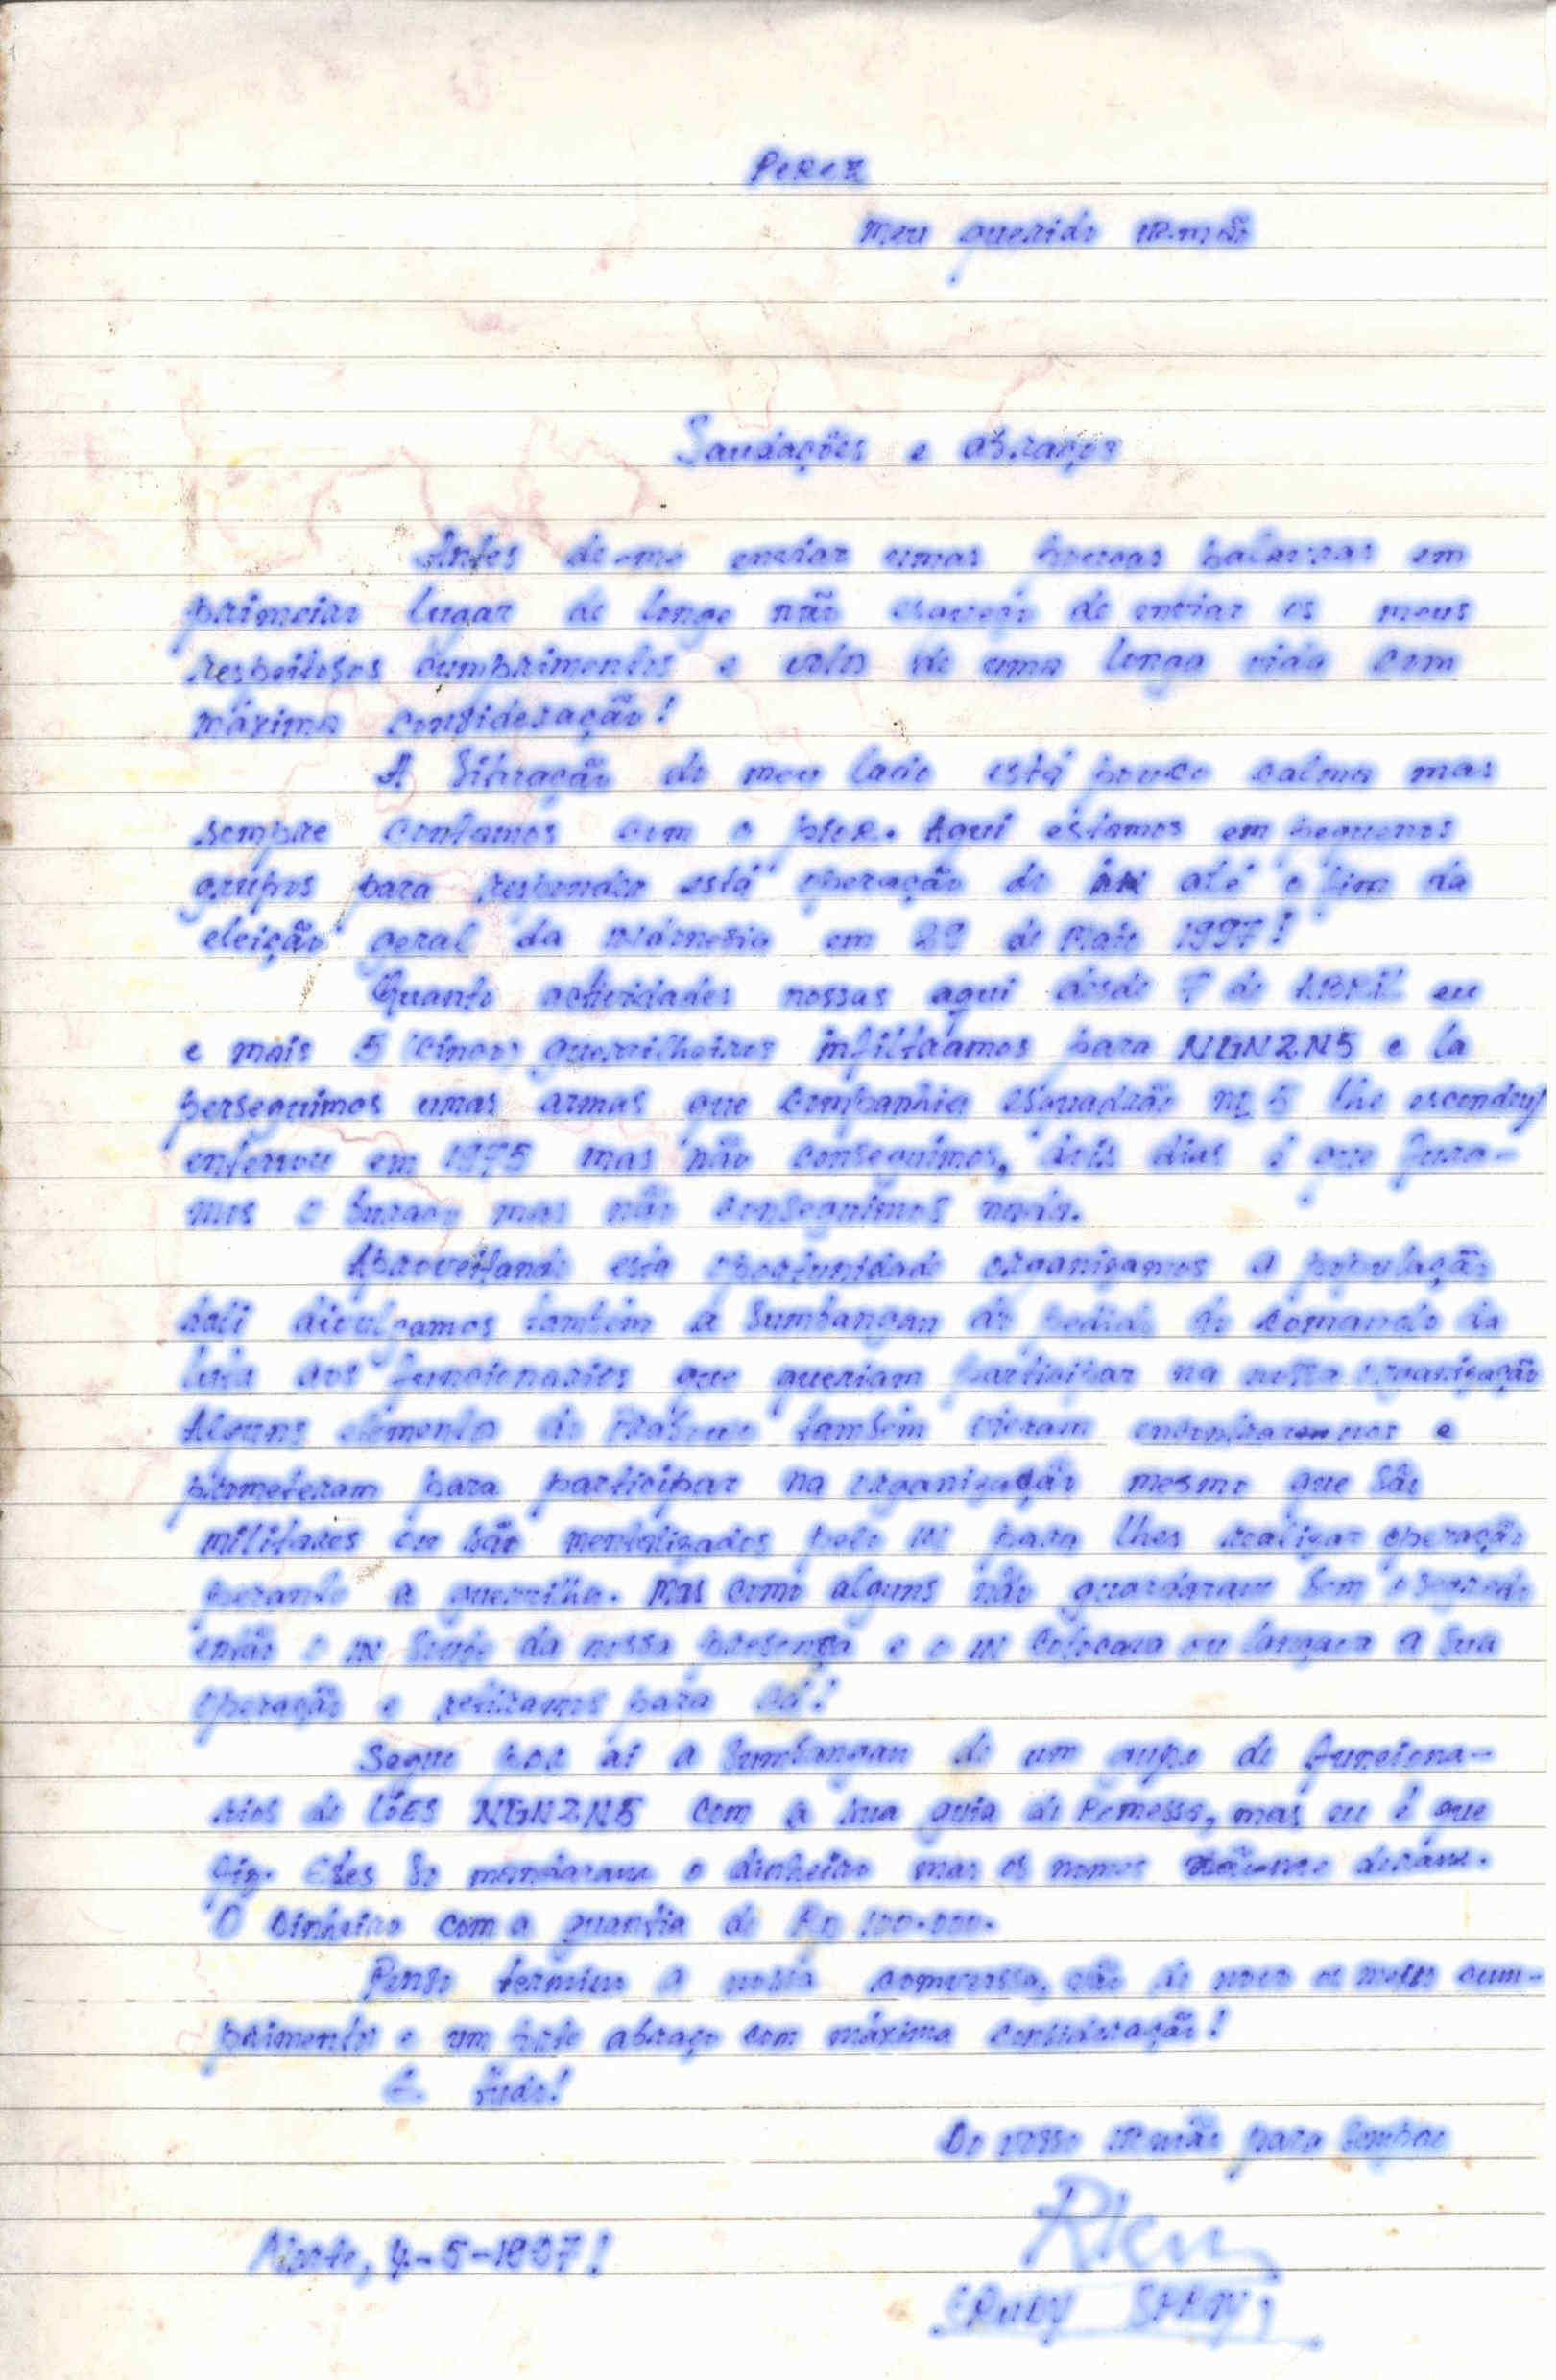 Perez
Meu querido irmão
Saudações e abraços
Antes de-me enviar umas poucas palavras em
primeiro lugar de longe não esqueço de enviar os meus
respeitosos cumprimentos e votos de uma longa vida com
máxima consideração!
A situação do meu lado está pouco calma mas
sempre contamos com o pior. Aqui estamos em pequenos
grupos para responder está operação do até o fim da
eleição geral da indonesia em 29 de Maio 1997!
Quanto actividades nossas aqui desde 7 de ABRIL eu
e mais 5 (cinco) guerrilheiros infiltramos para NGN2N5 e la
perseguimos umas armas que companhia esquadrão nº 5 lhe escondeu/
enterrou em 1975 mas não conseguimos, dois dias é que fura-
mos o buraco mas não conseguimos nada.
Aproveitando esta oportunidade organizamos a população
dali divulgamos também a Sumbangan do pedido do comando da
luta aos funcionarios que queriam participar na nossa organização
Alguns elemento do também vieram encontraram-nos e
prometeram para participar na organização mesmo que são
militares ou são mentalizados pelo ini para lhes realizar operação
perante a guerrilha. Mas como alguns não guardaram bem o segredo
então o ini soube da nossa presença e o ini colocara ou lançara a sua
operação e retiramos para cá!
Segue por aí a Sumbangan de um grupo de funciona-
rios de NGN2N5 com a sua guia de Remessa, mas eu é que
fiz. Eles só mandaram o dinheiro mas os nomes não-me deram.
O dinheiro com a quantia de Rp 100.000.
Penso termino a nossa conversa, vão de novo os meus cum-
primentos e um forte abraço com máxima consideração!
É tudo!
Do vosso irmão para sempre
Norte, 4-5-1997!